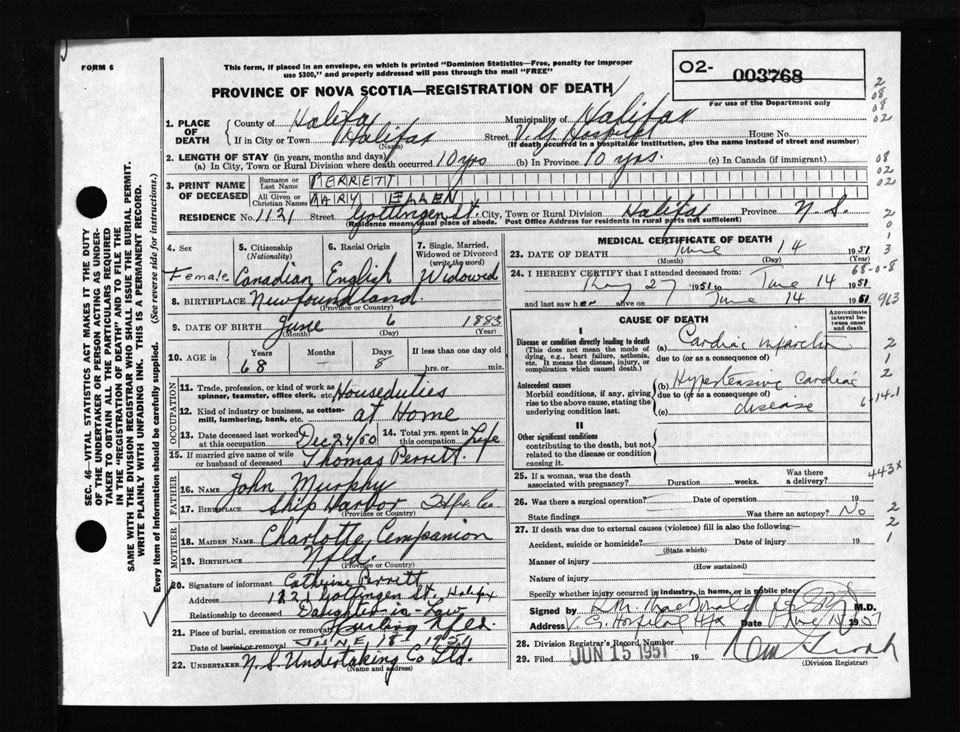 FORM 6
This form, if placed in an envelope, on which is printed "Dominion Statistics—Free, penalty for improper
use $300," and properly addressed will pass through the mail "FREE"
PROVINCE OF NOVA SCOTIA—REGISTRATION OF DEATH
O2- 003768
For use of the Department only
1. PLACE OF DEATH
County of Halifax Municipality of Halifax
If in City or Town Halifax (Name) Street V.G. Hospital House No.
(If death occurred in a hospital or institution, give the name instead of street and number)
2. LENGTH OF STAY (in years, months and days)
(a) In City, Town or Rural Division where death occurred 10 yrs (b) In Province 10 yrs. (c) In Canada (if immigrant)
3. PRINT NAME OF DECEASED
Surname or Last Name PERRETT
All Given or Christian Names MARY ELLEN
RESIDENCE No. 1121 Street Gottingen St. City, Town or Rural Division Halifax Province N.S.
(Residence means usual place of abode. Post Office Address for Residents in rural parts not sufficient)
4. Sex Female
5. Citizenship (Nationality) Canadian
6. Racial Origin English
7. Single, Married, Widowed or Divorced (write the word) Widowed
8. BIRTHPLACE Newfoundland (Province or Country)
9. DATE OF BIRTH June (Month) 6 (Day) 1883 (Year)
10. AGE in Years 68 Months Days 8 If less than one day hrs. or min.
OCCUPATION
11. Trade, profession, or kind of work as spinner, teamster, office clerk, etc. Houseduties
12. Kind of industry or business, as cotton-mill, lumbering, bank, etc. at Home
13. Date deceased last worked at this occupation Dec 24/50
14. Total yrs. spent in this occupation Life
15. If married give name of wife or husband of deceased Thomas Perrett.
FATHER
16. NAME John Murphy
17. BIRTHPLACE Ship Harbor Hfx. Co (Province or Country)
MOTHER
18. MAIDEN NAME Charlotte Companion
19. BIRTHPLACE Nfld. (Province or Country)
20. Signature of informant Catherine Perrett
Address 1121 Gottingen St. Halifax
Relationship to deceased Daughter-in-Law
21. Place of burial, cremation or removal Nfld.
Date of burial or removal JUNE 18th 1951
22. UNDERTAKER N.S. Undertaking Co Ltd.
(Name and address)
MEDICAL CERTIFICATE OF DEATH
23. DATE OF DEATH June (Month) 14 (Day) 1951 (Year)
24. I HEREBY CERTIFY that I attended deceased from:
May 27 1951 to June 14 1951
and last saw her alive on June 14 1951
CAUSE OF DEATH
Approximate interval between onset and death
I
Disease or condition directly leading to death
(This does not mean the mode of dying, e.g., heart failure, asthenia, etc. It means the disease, injury, or complication which caused death.)
(a) Cardiac infarction
due to (or as a consequence of)
Antecedent causes
Morbid conditions, if any, giving rise to the above cause, stating the underlying condition last.
(b) Hypertensive Cardiac
due to (or as a consequence of)
(c) disease
II
Other significant conditions
contributing to the death, but not related to the disease or condition causing it.
25. If a woman, was the death associated with pregnancy? Duration weeks. Was there a delivery?
26. Was there a surgical operation? Date of operation 19
State findings Was there an autopsy? No
27. If death was due to external causes (violence) fill in also the following:—
Accident, suicide or homicide? (State which) Date of injury 19
Manner of injury (How sustained)
Nature of injury
Specify whether injury occurred in industry, in home, or in public place
Signed by MacDonald M.D.
Address V.G. Hospital Hfx Date June 1951
28. Division Registrar's Record Number
29. Filed JUN 15 1951 19
(Division Registrar)
SEC. 46—VITAL STATISTICS ACT MAKES IT THE DUTY
OF THE UNDERTAKER OR PERSON ACTING AS UNDER-
TAKER TO OBTAIN ALL THE PARTICULARS REQUIRED
IN THE "REGISTRATION OF DEATH" AND TO FILE THE
SAME WITH THE DIVISION REGISTRAR WHO SHALL ISSUE THE BURIAL PERMIT.
WRITE PLAINLY WITH UNFADING INK. THIS IS A PERMANENT RECORD.
Every item of Information should be carefully supplied. (See reverse side for instructions.)
2
08
08
02
08
02
02
2
0
1
3
68-0-8
963
2
1
2
6-14-1
443X
2
2
1